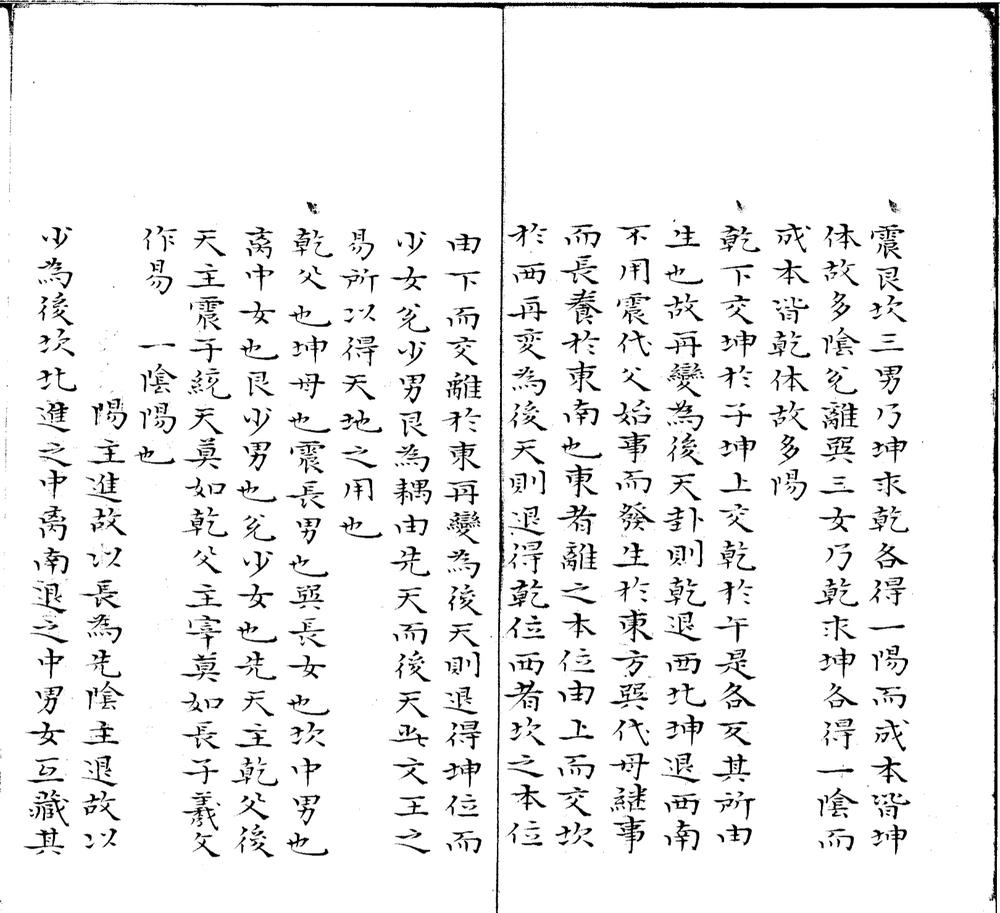 震艮坎三男乃坤求乾各得一陽而成本皆坤
体故多陰兌離巽三女乃乾求坤各得一陰而
成本皆乾体故多陽
乾下交坤於子坤上交乾於午是各反其所由
生也故再變為後天卦則乾退西北坤退西南
不用震代父始事而發生於東方巽代母継事
而長養於東南也東者離之本位由上而交坎
於西再変為後天則退得乾位西者坎之本位
由下而交離於東再變為後天則退得坤位而
少女兌少男艮為耦由先天而後天此文王之
易所以得天地之用也
乾父也坤母也震長男也巽長女也坎中男也
离中女也艮少男也兌少女也先天主乾父後
天主震子統天莫如乾父主宰莫如長子羲文
作易 一陰陽也
陽主進故以長為先陰主退故以
少為後坎北進之中离南退之中男女互藏其